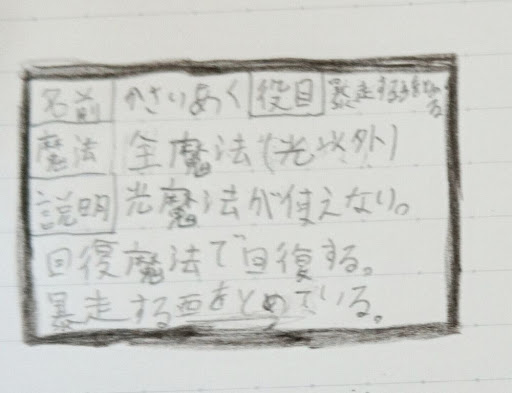 名前 かさいめぐ 役目 暴走する
魔法 全魔法(光以外)
説明 光魔法が使えない。
回復魔法で回復する。
暴走する西をとめている。